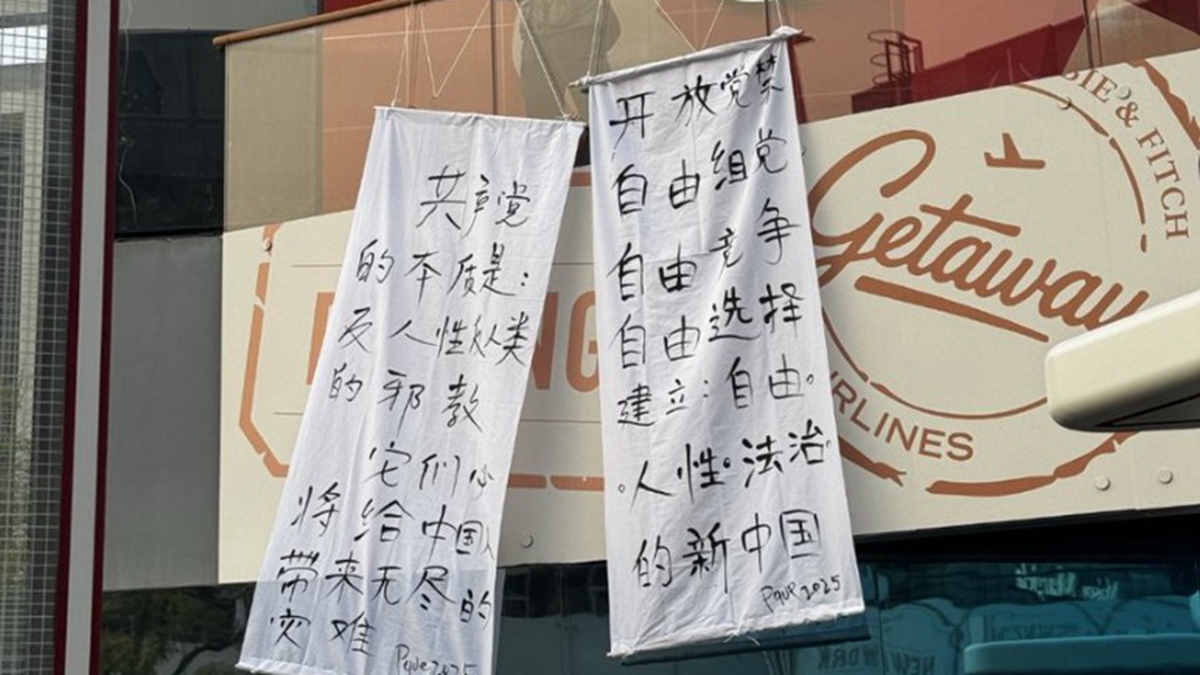 共产党
的本质是：
反人性反人类
的邪教
它们必
将给中国人
带来无尽的
灾难
2025
开放党禁
自由组党。
自由竞争
自由选择
建立：自由。
。人性。法治。
的新中国
2025
Getaway
& FITCH
AIRLINES